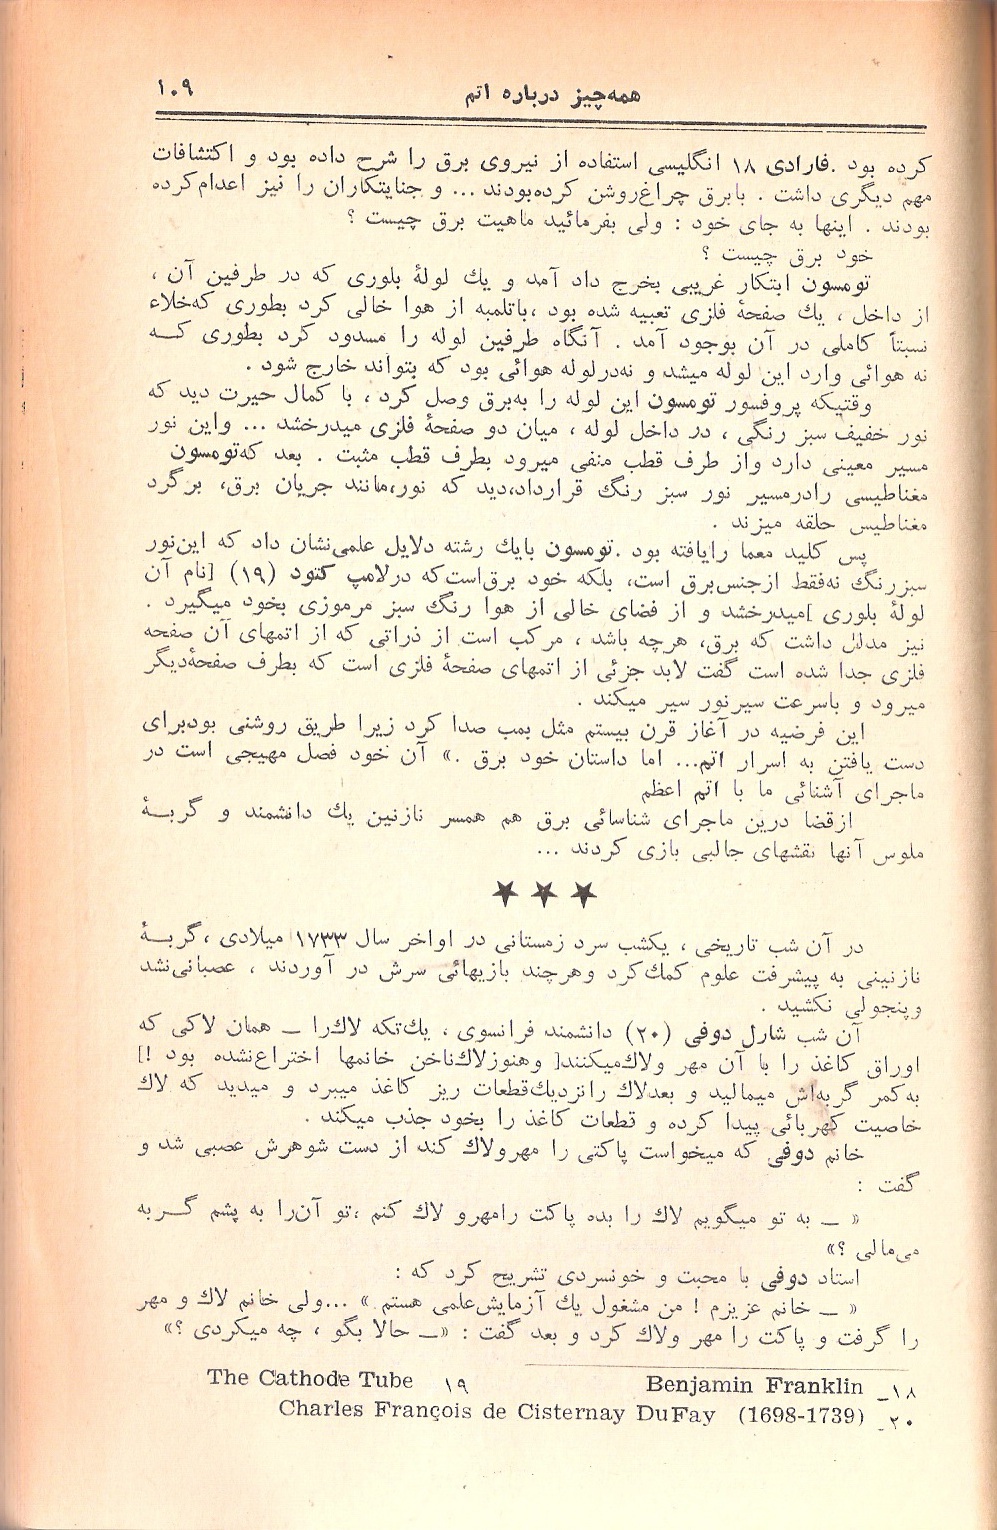 همه‌چیز درباره اتم
۱۰۹
کرده بود .فارادی ۱۸ انگلیسی استفاده از نیروی برق را شرح داده بود و اکتشافات
مهم دیگری داشت . بابرق چراغ‌روشن کرده‌بودند ... و جنایتکاران را نیز اعدام‌کرده
بودند . اینها به جای خود : ولی بفرمائید ماهیت برق چیست ؟
خود برق چیست ؟
تومسون ابتکار غریبی بخرج داد آمد و یك لولهٔ بلوری که در طرفین آن ،
از داخل ، یك صفحهٔ فلزی تعبیه شده بود ،باتلمبه از هوا خالی کرد بطوری که‌خلاء
نسبتاً کاملی در آن بوجود آمد . آنگاه طرفین لوله را مسدود کرد بطوری کــه
نه هوائی وارد این لوله میشد و نه‌درلوله هوائی بود که بتواند خارج شود .
وقتیکه پروفسور تومسون این لوله را به‌برق وصل کرد ، با کمال حیرت دید که
نور خفیف سبز رنگی ، در داخل لوله ، میان دو صفحهٔ فلزی میدرخشد ... واین نور
مسیر معینی دارد واز طرف قطب منفی میرود بطرف قطب مثبت . بعد که‌تومسون
مغناطیسی رادرمسیر نور سبز رنگ قرارداد،دید که نور،مانند جریان برق، برگرد
مغناطیس حلقه میزند .
پس کلید معما رایافته بود .تومسون بایك رشته دلایل علمی‌نشان داد که این‌نور
سبزرنگ نه‌فقط ازجنس‌برق است، بلکه خود برق‌است‌که درلامپ کتود (۱۹) [نام آن
لولهٔ بلوری ]میدرخشد و از فضای خالی از هوا رنگ سبز مرموزی بخود میگیرد .
نیز مدلل داشت که برق، هرچه باشد ، مرکب است از ذراتی که از اتمهای آن صفحه
فلزی جدا شده است گفت لابد جزئی از اتمهای صفحهٔ فلزی است که بطرف صفحهٔ‌دیگر
میرود و باسرعت سیرنور سیر میکند .
این فرضیه در آغاز قرن بیستم مثل بمب صدا کرد زیرا طریق روشنی بودبرای
دست یافتن به اسرار اتم... اما داستان خود برق .» آن خود فصل مهیجی است در
ماجرای آشنائی ما با اتم اعظم
ازقضا درین ماجرای شناسائی برق هم همسر نازنین یك دانشمند و گربــهٔ
ملوس آنها نقشهای جالبی بازی کردند ...
★ ★ ★
در آن شب تاریخی ، یکشب سرد زمستانی در اواخر سال ۱۷۳۳ میلادی ،گربــهٔ
نازنینی به پیشرفت علوم کمك‌کرد وهرچند بازیهائی سرش در آوردند ، عصبانی‌نشد
وپنجولی نکشید .
آن شب شارل دوفی (۲۰) دانشمند فرانسوی ، یك‌تکه لاك‌را ــ همان لاکی که
اوراق کاغذ را با آن مهر ولاك‌میکنند[ وهنوزلاك‌ناخن خانمها اختراع‌نشده بود !]
به‌کمر گربه‌اش میمالید و بعدلاك رانزدیك‌قطعات ریز کاغذ میبرد و میدید که لاك
خاصیت کهربائی پیدا کرده و قطعات کاغذ را بخود جذب میکند .
خانم دوفی که میخواست پاکتی را مهرولاك کند از دست شوهرش عصبی شد و
گفت :
« ــ به تو میگویم لاك را بده پاکت رامهرو لاك کنم ،تو آن‌را به پشم گــربه
می‌مالی ؟»
استاد دوفی با محبت و خونسردی تشریح کرد که :
« ــ خانم عزیزم ! من مشغول یك آزمایش‌علمی هستم » ...ولی خانم لاك و مهر
را گرفت و پاکت را مهر ولاك کرد و بعد گفت : «ــ حالا بگو ، چه میکردی ؟»
۱۸_ Benjamin Franklin
۱۹ The Cathode Tube
۲۰_ Charles François de Cisternay DuFay (1698-1739)